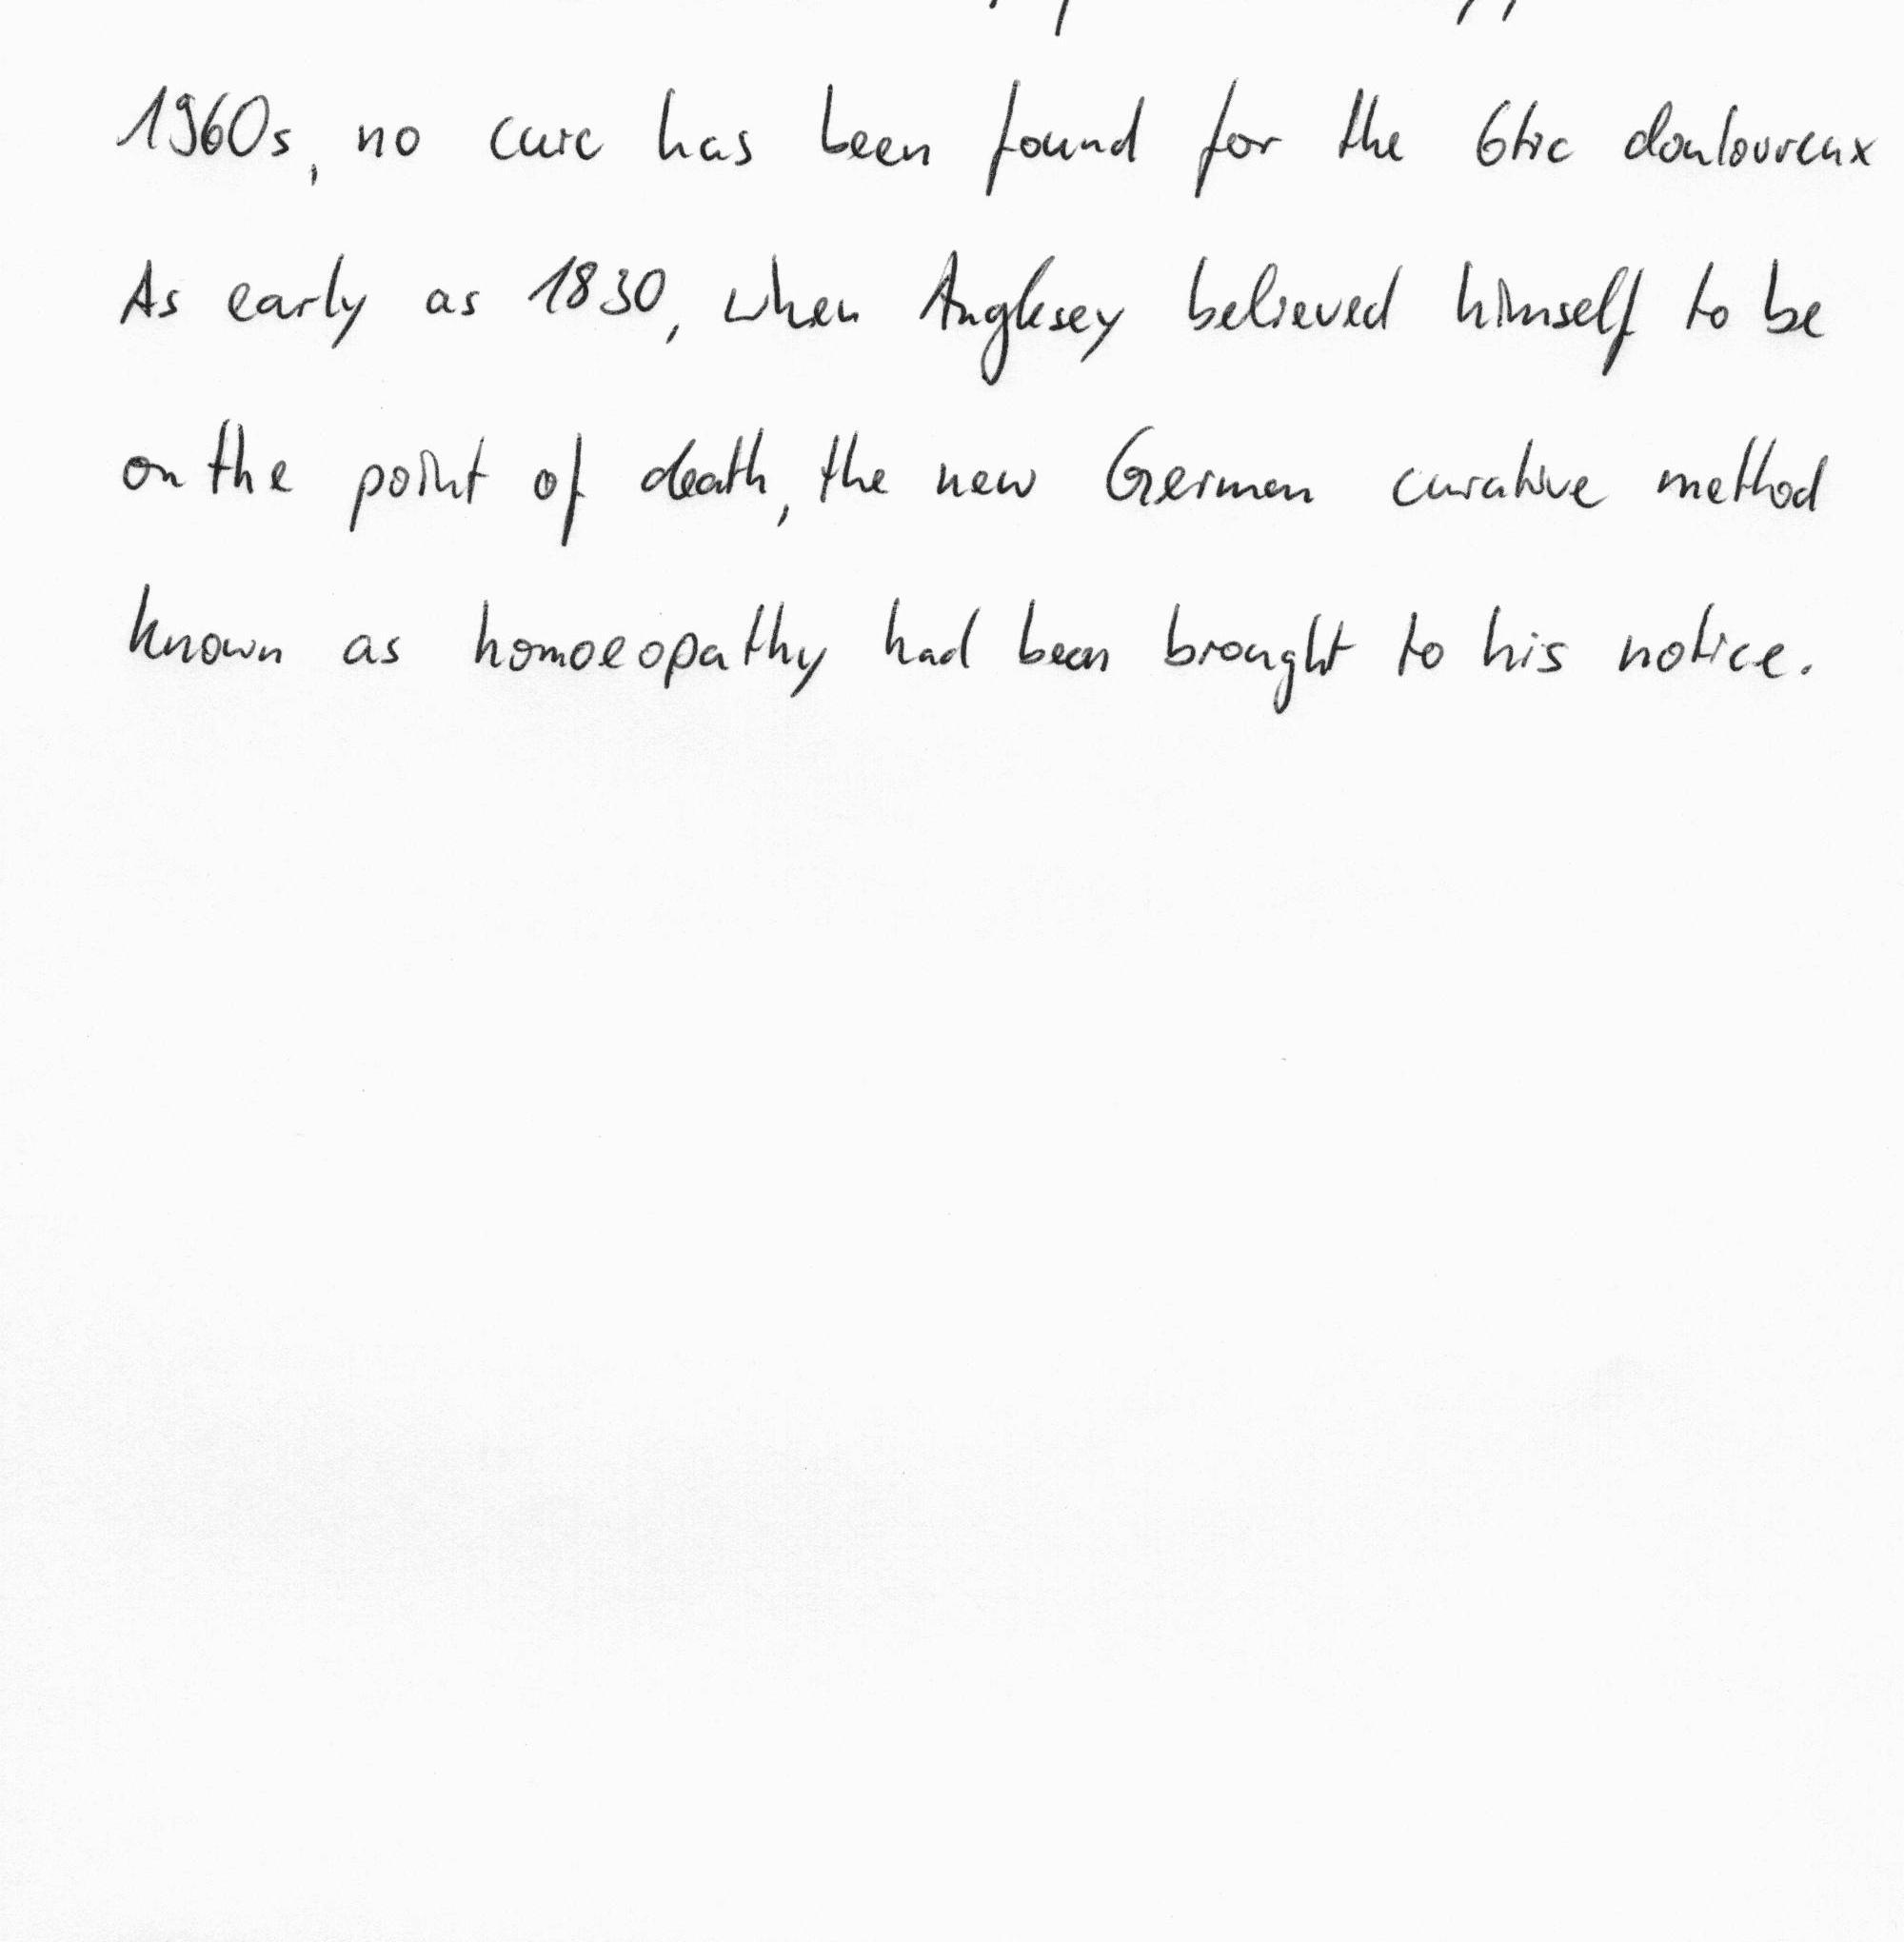 1960s, no cure has been found for the 6tic douloureux
As early as 1830, when Anglesey believed himself to be
on the point of death, the new German curative method
known as homoeopathy had been brought to his notice.